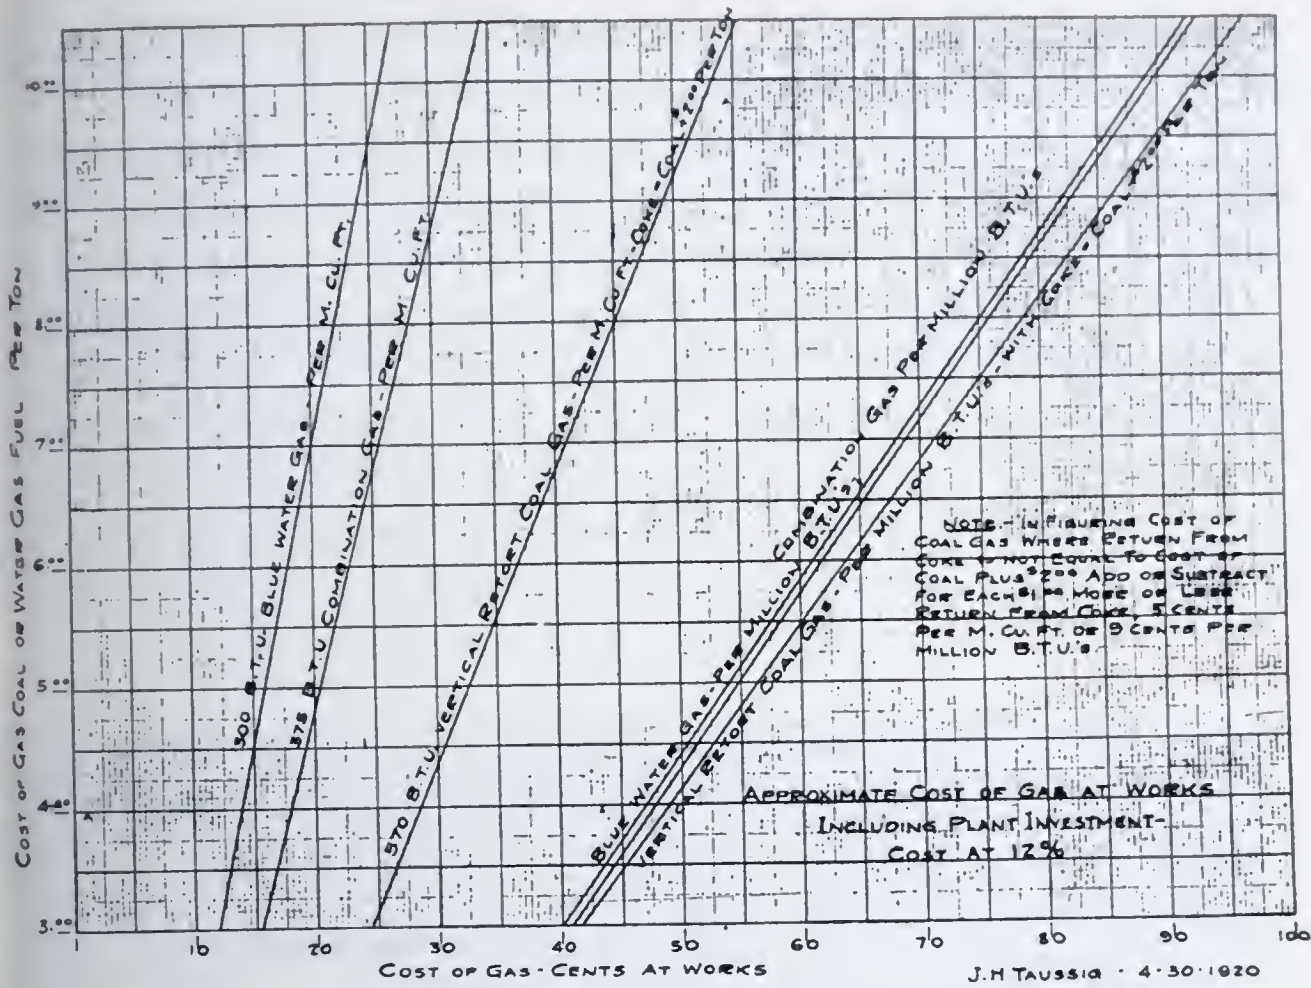 COST OF GAS COAL OR WATER GAS FUEL PER TON
10.00
9.00
8.00
7.00
6.00
5.00
4.00
3.00
300 B.T.U. BLUE WATER GAS - PER M. CU. FT.
375 B.T.U COMBINATION GAS - PER M. CU. FT.
570 B.T.U. VERTICAL RETORT COAL GAS - PER M. CU FT. - COKE - COAL + $2.00 PER TON
BLUE WATER GAS - PER MILLION B.T.U'S
COMBINATION GAS PER MILLION B.T.U'S
VERTICAL RETORT COAL GAS - PER MILLION B.T.U'S - WITH COKE - COAL + $2.00 PER TON
NOTE - IN FIGURING COST OF
COAL GAS WHERE RETURN FROM
COKE IS NOT EQUAL TO COST OF
COAL PLUS $2.00 ADD OR SUBTRACT
FOR EACH $1.00 MORE OR LESS
RETURN FROM COKE, 5 CENTS
PER M. CU. FT. OR 9 CENTS PER
MILLION B.T.U.'S
APPROXIMATE COST OF GAS AT WORKS
INCLUDING PLANT INVESTMENT-
COST AT 12%
10 20 30 40 50 60 70 80 90 100
COST OF GAS - CENTS AT WORKS
J.H TAUSSIG - 4-30-1920